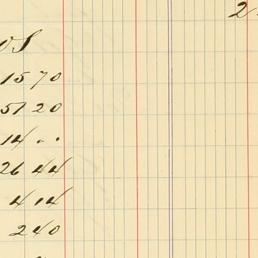 2
1570
5120
14 . .
26 44
4 14
2 40